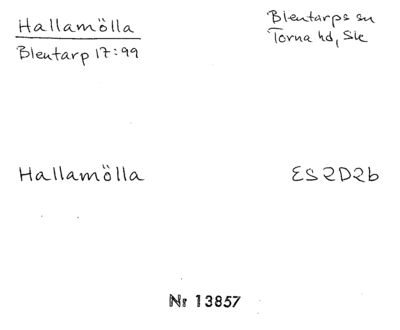 Hallamölla
Blentarp 17:99
Blentarps sn
Torna hd, Sk
Hallamölla
ES2D2b
Nr 13857